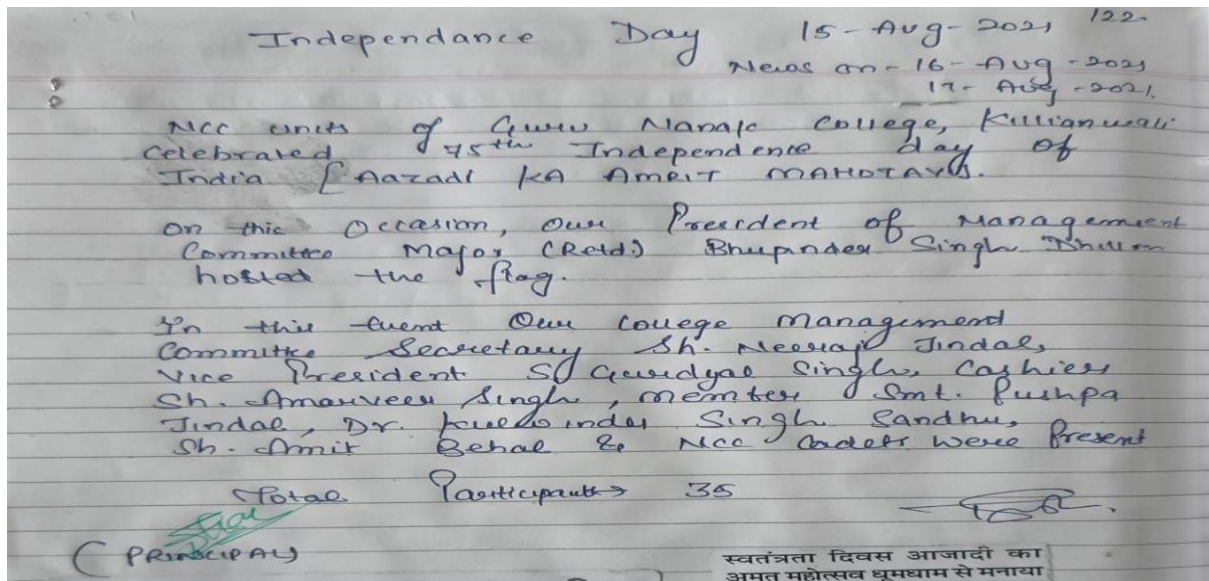 122.
Independance Day 15-Aug-2021
News on - 16-Aug-2021
17-Aug-2021.
NCC units of Guru Nanak College, Killianwali
Celebrated 75th Independence day of
India [AAZADI KA AMRIT MAHOTAVS.
On this Occasion, Our President of Management
Committee Major (Retd.) Bhupinder Singh Dhillon
hosted the flag.
In this Event Our College Management
Committee Secretary Sh. Neeraj Jindal,
Vice President S Gurdyal Singh, Cashier
Sh. Amarveer Singh, member Smt. Pushpa
Jindal, Dr. Kulwinder Singh Sandhu,
Sh. Amit Behal & NCC Cadets Were Present
Total Participants → 35
(PRINCIPAL)
स्वतंत्रता दिवस आजादी का
अमृत महोत्सव धूमधाम से मनाया